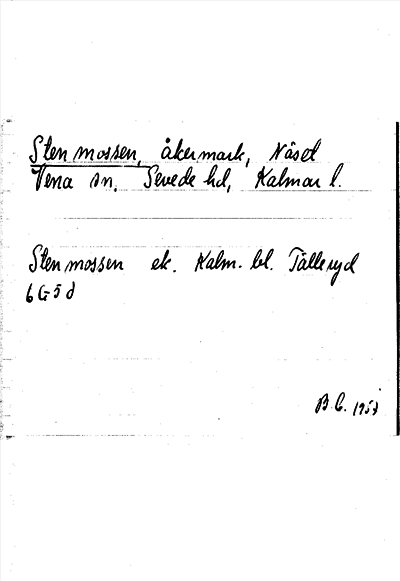 Stenmossen, åkermark, Näset
Vena sn. Sevede hd, Kalmar l.
Stenmossen ek. Kalm. bl. Tälleryd
6 G 5 d
B.C. 1953